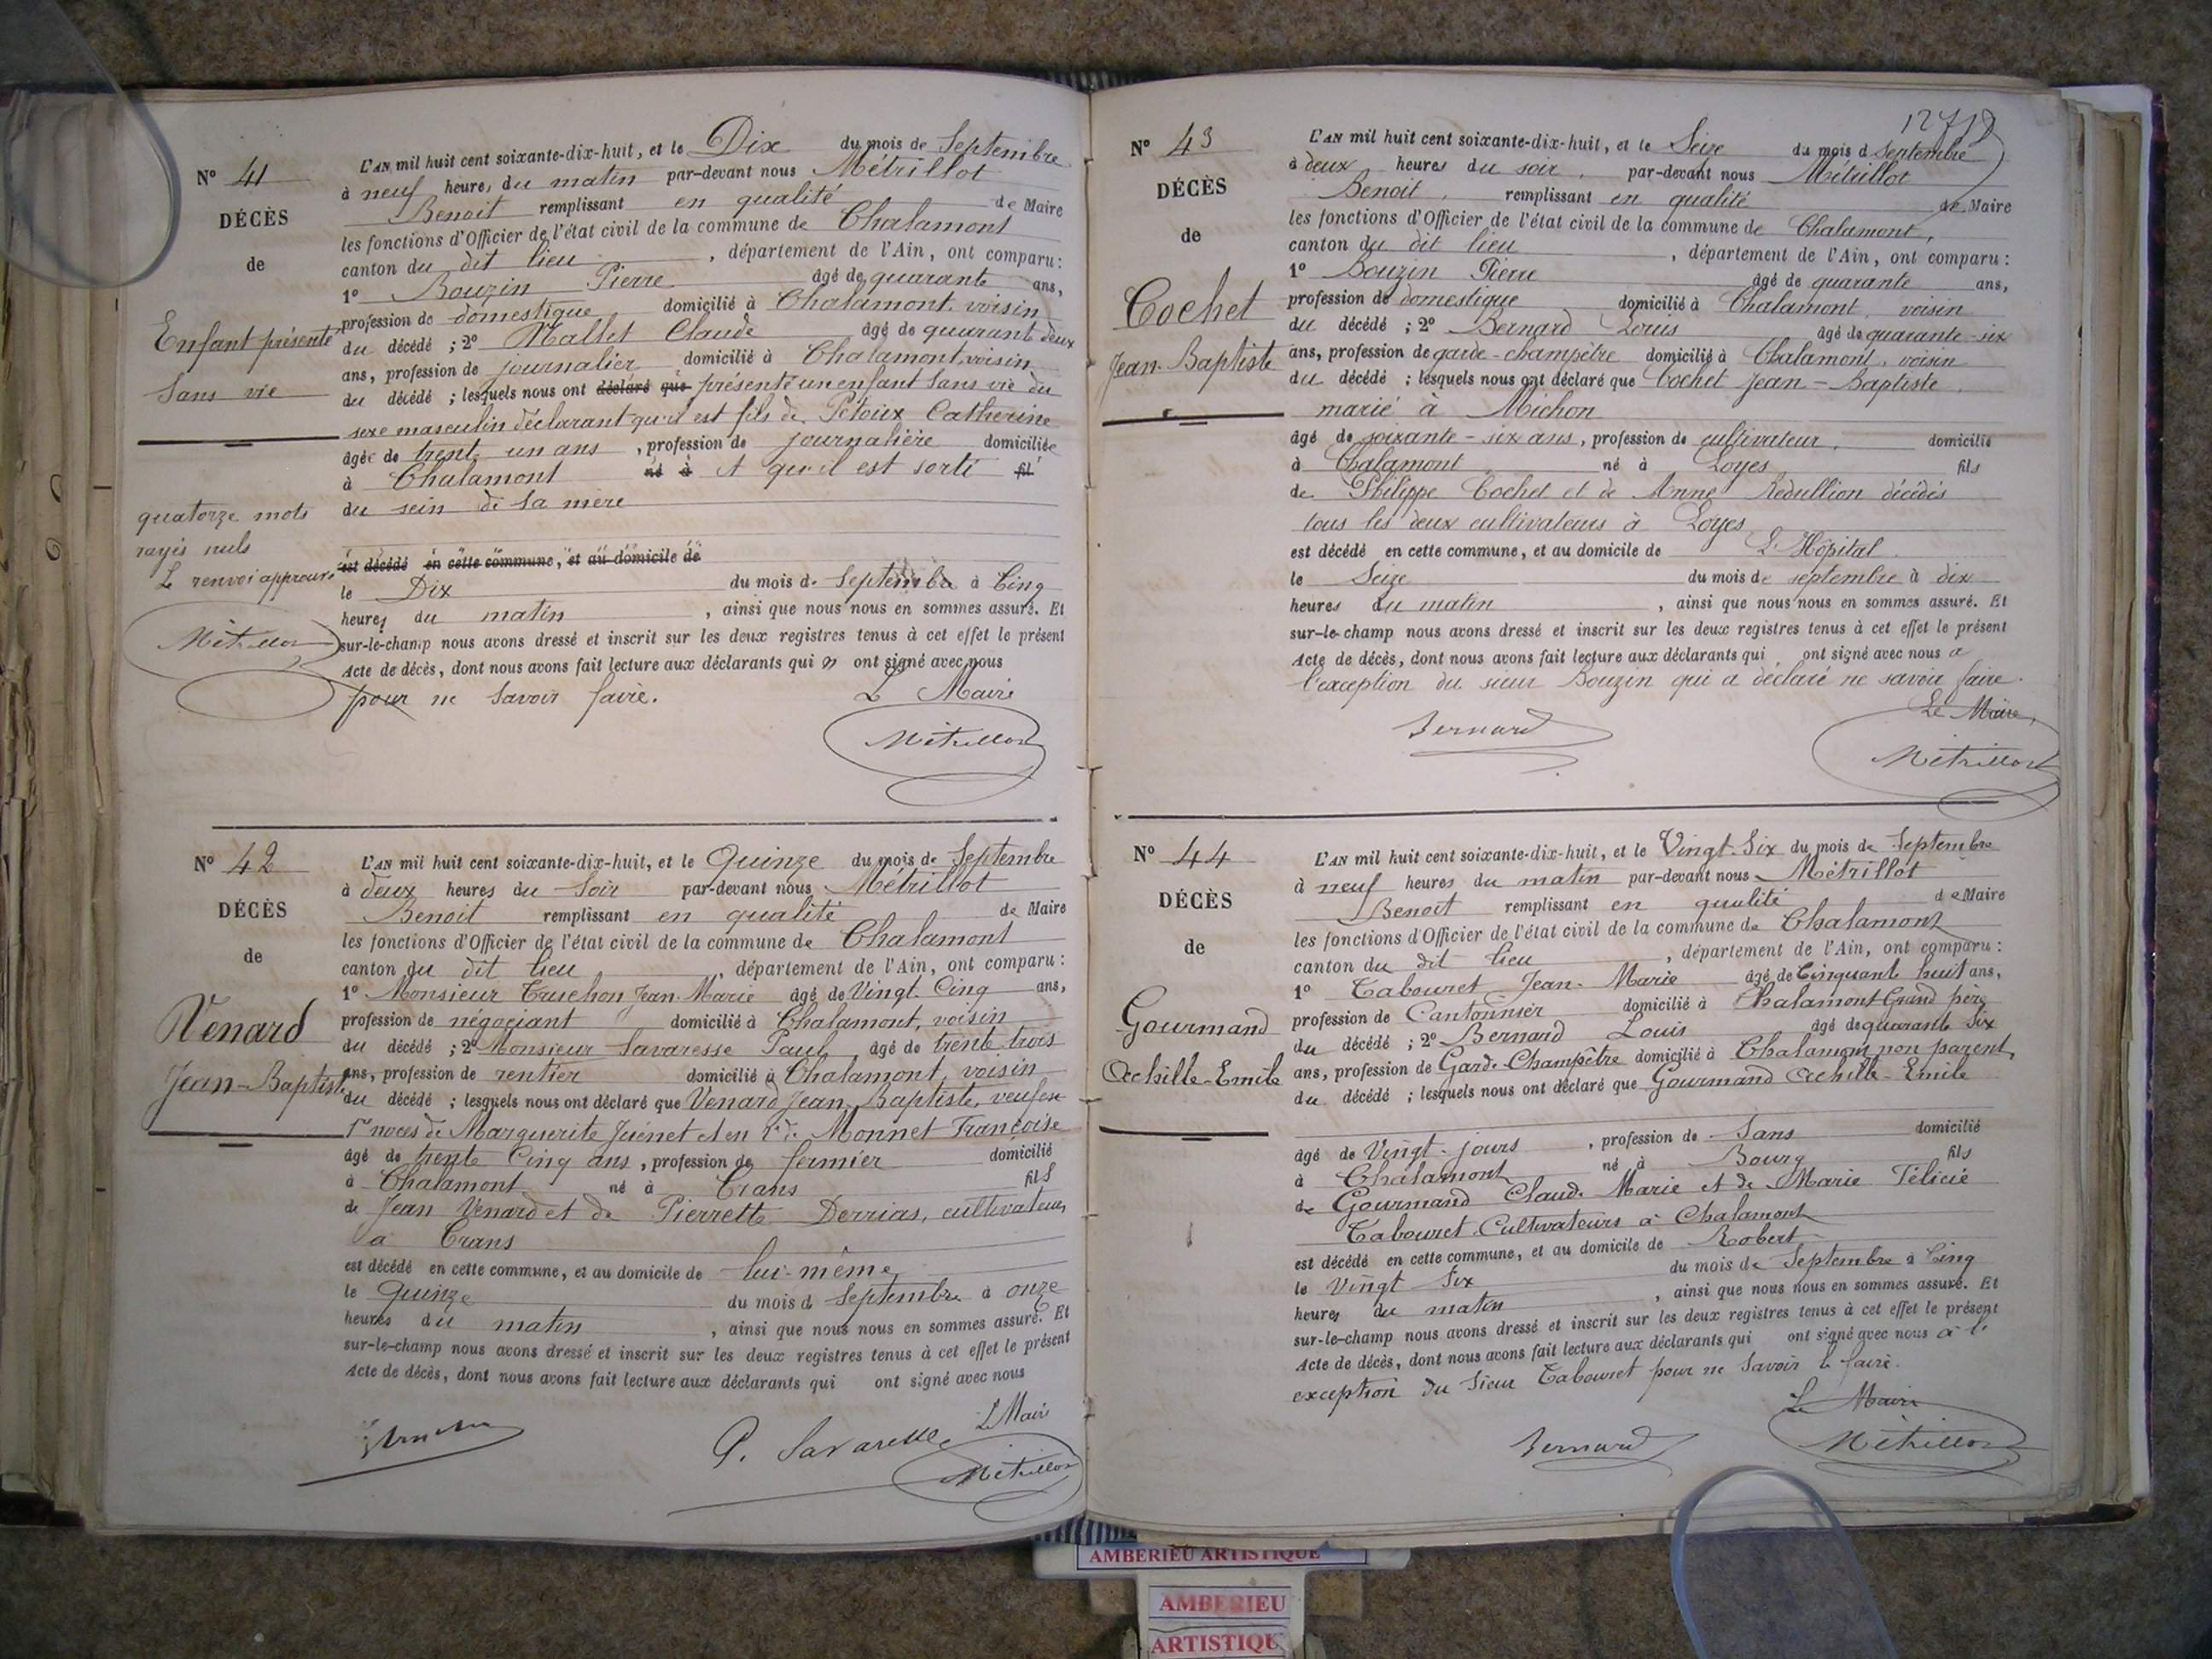 N° 41
DÉCÈS
de
Enfant présenté
Sans vie
quatorze mots
rayés nuls
Le renvoi approuvé
Métrillot
L'AN mil huit cent soixante-dix-huit, et le Dix du mois de Septembre
à neuf heures du matin par-devant nous Métrillot
Benoit remplissant en qualité de Maire
les fonctions d'Officier de l'état civil de la commune de Chalamont
canton du dit lieu, département de l'Ain, ont comparu:
1° Bouzin Pierre âgé de quarante ans,
profession de domestique domicilié à Chalamont, voisin
du décédé; 2° Mallet Claude âgé de quarante deux
ans, profession de journalier domicilié à Chalamont, voisin
du décédé; lesquels nous ont déclaré que présenté un enfant sans vie du
sexe masculin déclarant qu'il est fils de Pétoux Catherine
âgée de trente un ans, profession de journalière domiciliée
à Chalamont né à et qu'il est sorti fil
du sein de sa mère
est décédé en cette commune, et au domicile de
le Dix du mois de Septembre à Cinq
heures du matin, ainsi que nous nous en sommes assuré. Et
sur-le-champ nous avons dressé et inscrit sur les deux registres tenus à cet effet le présent
Acte de décès, dont nous avons fait lecture aux déclarants qui n ont signé avec nous
pour ne savoir faire. Le Maire
Métrillot
N° 42
DÉCÈS
de
Venard
Jean-Baptiste
L'AN mil huit cent soixante-dix-huit, et le Quinze du mois de Septembre
à deux heures du Soir par-devant nous Métrillot
Benoit remplissant en qualité de Maire
les fonctions d'Officier de l'état civil de la commune de Chalamont
canton du dit lieu, département de l'Ain, ont comparu:
1° Monsieur Truchon Jean-Marie âgé de Vingt Cinq ans,
profession de négociant domicilié à Chalamont, voisin
du décédé; 2° Monsieur Savaresse Paul âgé de trente trois
ans, profession de rentier domicilié à Chalamont, voisin
du décédé; lesquels nous ont déclaré que Venard Jean-Baptiste, veuf en
1res noces de Marguerite et en 2e de Monnet Françoise
âgé de trente Cinq ans, profession de fermier domicilié
à Chalamont né à Crans fils
de Jean Venard et de Pierrette Derrias, cultivateurs
à Crans
est décédé en cette commune, et au domicile de lui-même
le Quinze du mois d Septembre à onze
heures du matin, ainsi que nous nous en sommes assuré. Et
sur-le-champ nous avons dressé et inscrit sur les deux registres tenus à cet effet le présent
Acte de décès, dont nous avons fait lecture aux déclarants qui ont signé avec nous
Le Maire
P. Savaresse
Métrillot
N° 43
DÉCÈS
de
Cochet
Jean-Baptiste
L'AN mil huit cent soixante-dix-huit, et le Seize du mois d Septembre
à deux heures du soir, par-devant nous Métrillot
Benoit, remplissant en qualité de Maire
les fonctions d'Officier de l'état civil de la commune de Chalamont,
canton du dit lieu, département de l'Ain, ont comparu:
1° Bouzin Pierre âgé de quarante ans,
profession de domestique domicilié à Chalamont, voisin
du décédé; 2° Bernard Louis âgé de quarante-six
ans, profession de garde-champêtre domicilié à Chalamont, voisin
du décédé; lesquels nous ont déclaré que Cochet Jean-Baptiste,
marié à Michon
âgé de soixante-six ans, profession de cultivateur, domicilié
à Chalamont né à Loyes fils
de Philippe Cochet et de Anne Redullion décédés
tous les deux cultivateurs à Loyes
est décédé en cette commune, et au domicile de L'Hôpital
le Seize du mois de septembre à dix
heures du matin, ainsi que nous nous en sommes assuré. Et
sur-le-champ nous avons dressé et inscrit sur les deux registres tenus à cet effet le présent
Acte de décès, dont nous avons fait lecture aux déclarants qui ont signé avec nous a
l'exception du sieur Bouzin qui a déclaré ne savoir faire.
Le Maire,
Bernard
Métrillot
N° 44
DÉCÈS
de
Gourmand
Achille-Emile
L'AN mil huit cent soixante-dix-huit, et le Vingt-Six du mois de Septembre
à neuf heures du matin par-devant nous Métrillot
Benoit remplissant en qualité de Maire
les fonctions d'Officier de l'état civil de la commune de Chalamont
canton du dit lieu, département de l'Ain, ont comparu:
1° Tabouret Jean-Marie âgé de Cinquante huit ans,
profession de Cantonnier domicilié à Chalamont Grand père
du décédé; 2° Bernard Louis âgé de quarante Six
ans, profession de Garde-Champêtre domicilié à Chalamont, non parent
du décédé; lesquels nous ont déclaré que Gourmand Achille-Emile
âgé de Vingt jours, profession de Sans domicilié
à Chalamont né à Bourg fils
de Gourmand Claude Marie et de Marie Félicie
Tabouret Cultivateurs à Chalamont
est décédé en cette commune, et au domicile de Robert
le Vingt Six du mois de Septembre à Cinq
heures du matin, ainsi que nous nous en sommes assuré. Et
sur-le-champ nous avons dressé et inscrit sur les deux registres tenus à cet effet le présent
Acte de décès, dont nous avons fait lecture aux déclarants qui ont signé avec nous à l'
exception du Sieur Tabouret pour ne Savoir le faire.
Le Maire
Bernard
Métrillot
AMBERIEU ARTISTIQUE
AMBERIEU
ARTISTIQU